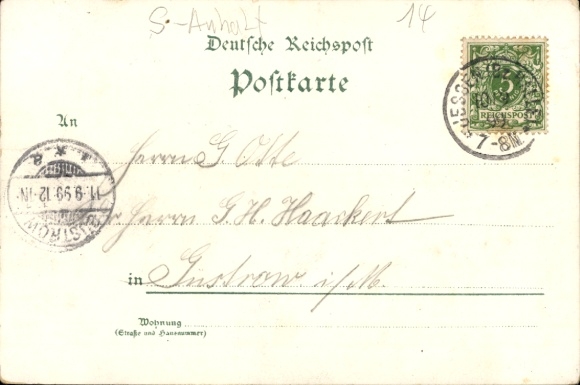 S.-Anhalt 14
Deutsche Reichspost
Postkarte
5
REICHSPOST
7-8N.
An
Herrn G Otte
11.9.99.12-1N.
GÜSTROW
Herrn G. H. Haackert
in Güstrow i/M.
Wohnung
(Straße und Hausnummer)